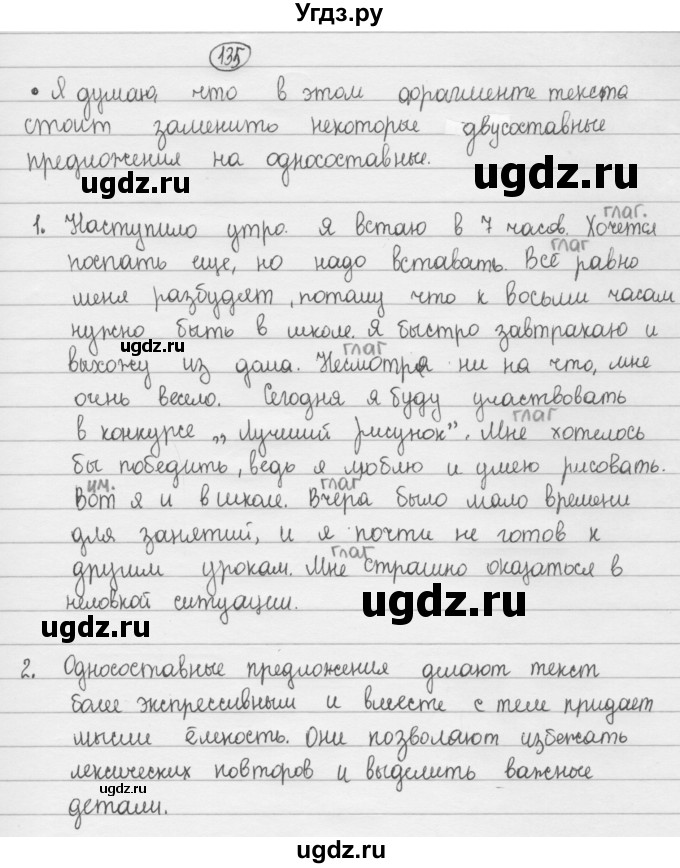 Угдз.ру
135
• Я думаю, что в этом фрагменте текста
стоит заменить некоторые двусоставные
предложения на односоставные.
ugdz.ru
ugdz.ru
глаг.
1. Наступило утро. Я встаю в 7 часов. Хочется
глаг
поспать еще, но надо вставать. Всё равно
меня разбудят, потому что к восьми часам
нужно быть в школе. Я быстро завтракаю и
ugdz.ru
глаг
выхожу из дома. Несмотря ни на что, мне
очень весело. Сегодня я буду участвовать
глаг
в конкурсе „Лучший рисунок". Мне хотелось
бы победить, ведь я люблю и умею рисовать.
им. глаг
Вот я и в школе. Вчера было мало времени
для занятий, и я почти не готов к
глаг
другим урокам. Мне страшно оказаться в
неловкой ситуации.
ugdz.ru
ugdz.ru
2. Односоставные предложения делают текст
более экспрессивным и вместе с тем придает
мысли ёмкость. Они позволяют избежать
лексических повторов и выделить важные
ugdz.ru
детали.
ugdz.ru